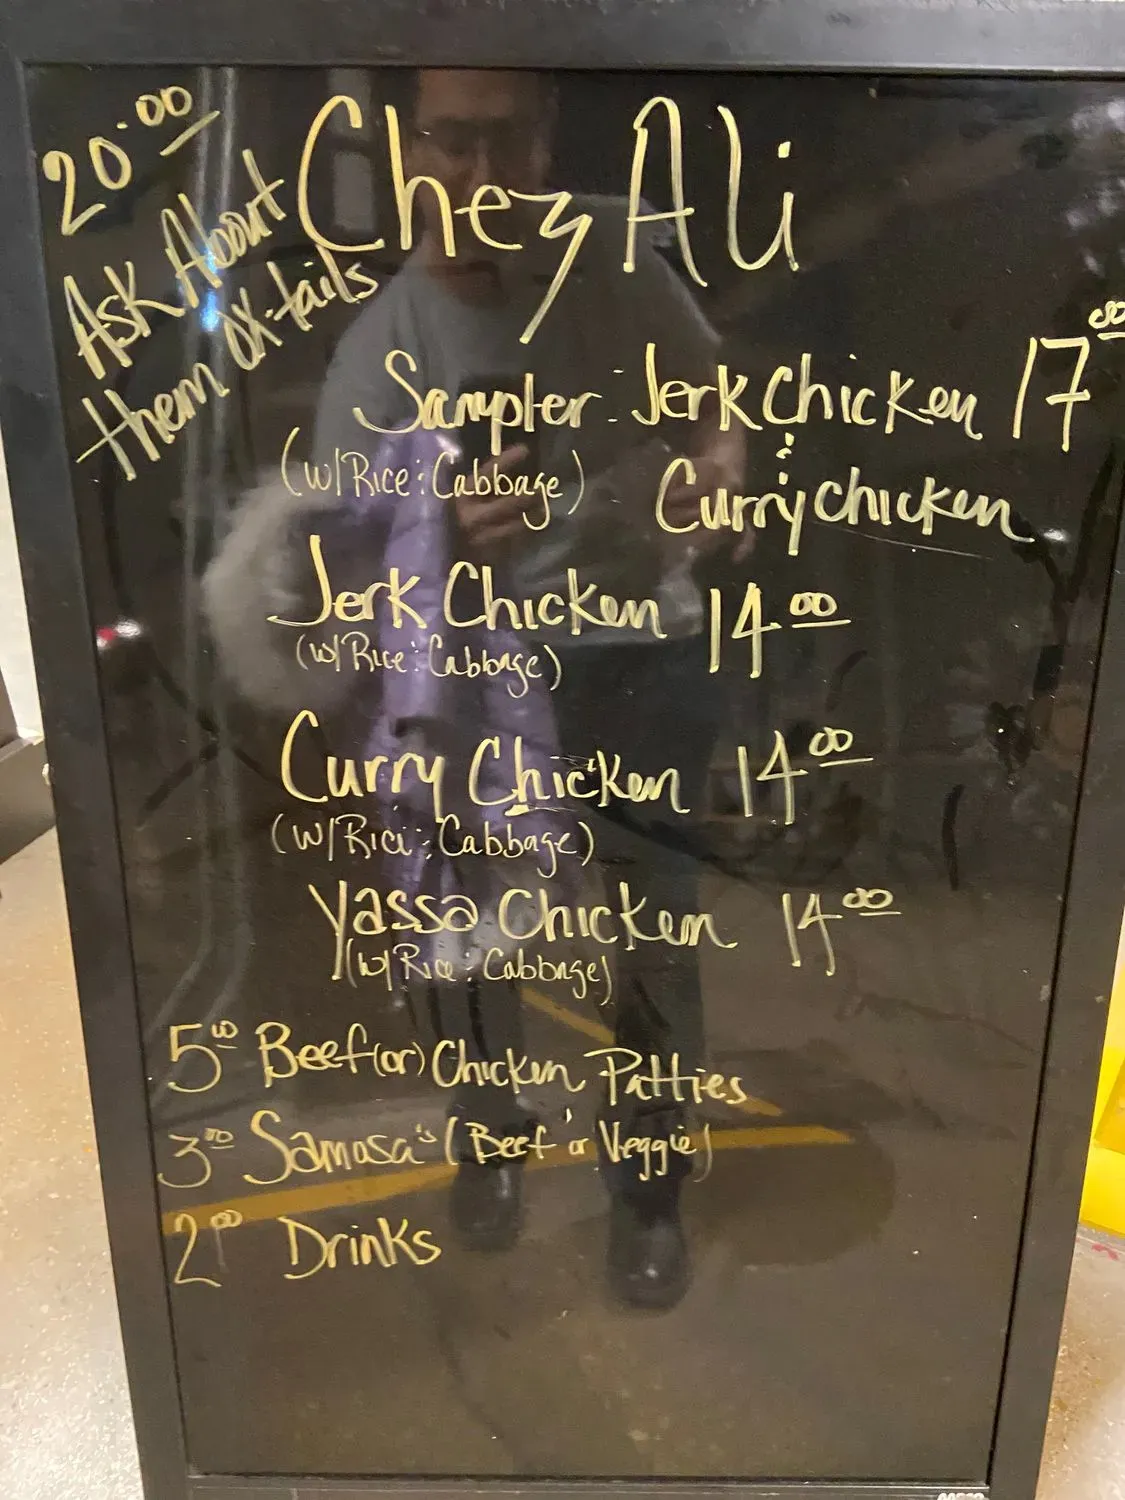 20.00
Ask About
them ox-tails
Chez Ali
Sampler: Jerk Chicken 17.00
(w/Rice & Cabbage) & Curry chicken
Jerk Chicken 14.00
(w/Rice & Cabbage)
Curry Chicken 14.00
(w/Rici & Cabbage)
Yassa Chicken 14.00
(w/Rice & Cabbage)
5.00 Beef (or) Chicken Patties
3.00 Samosa's (Beef or Veggie)
2.00 Drinks